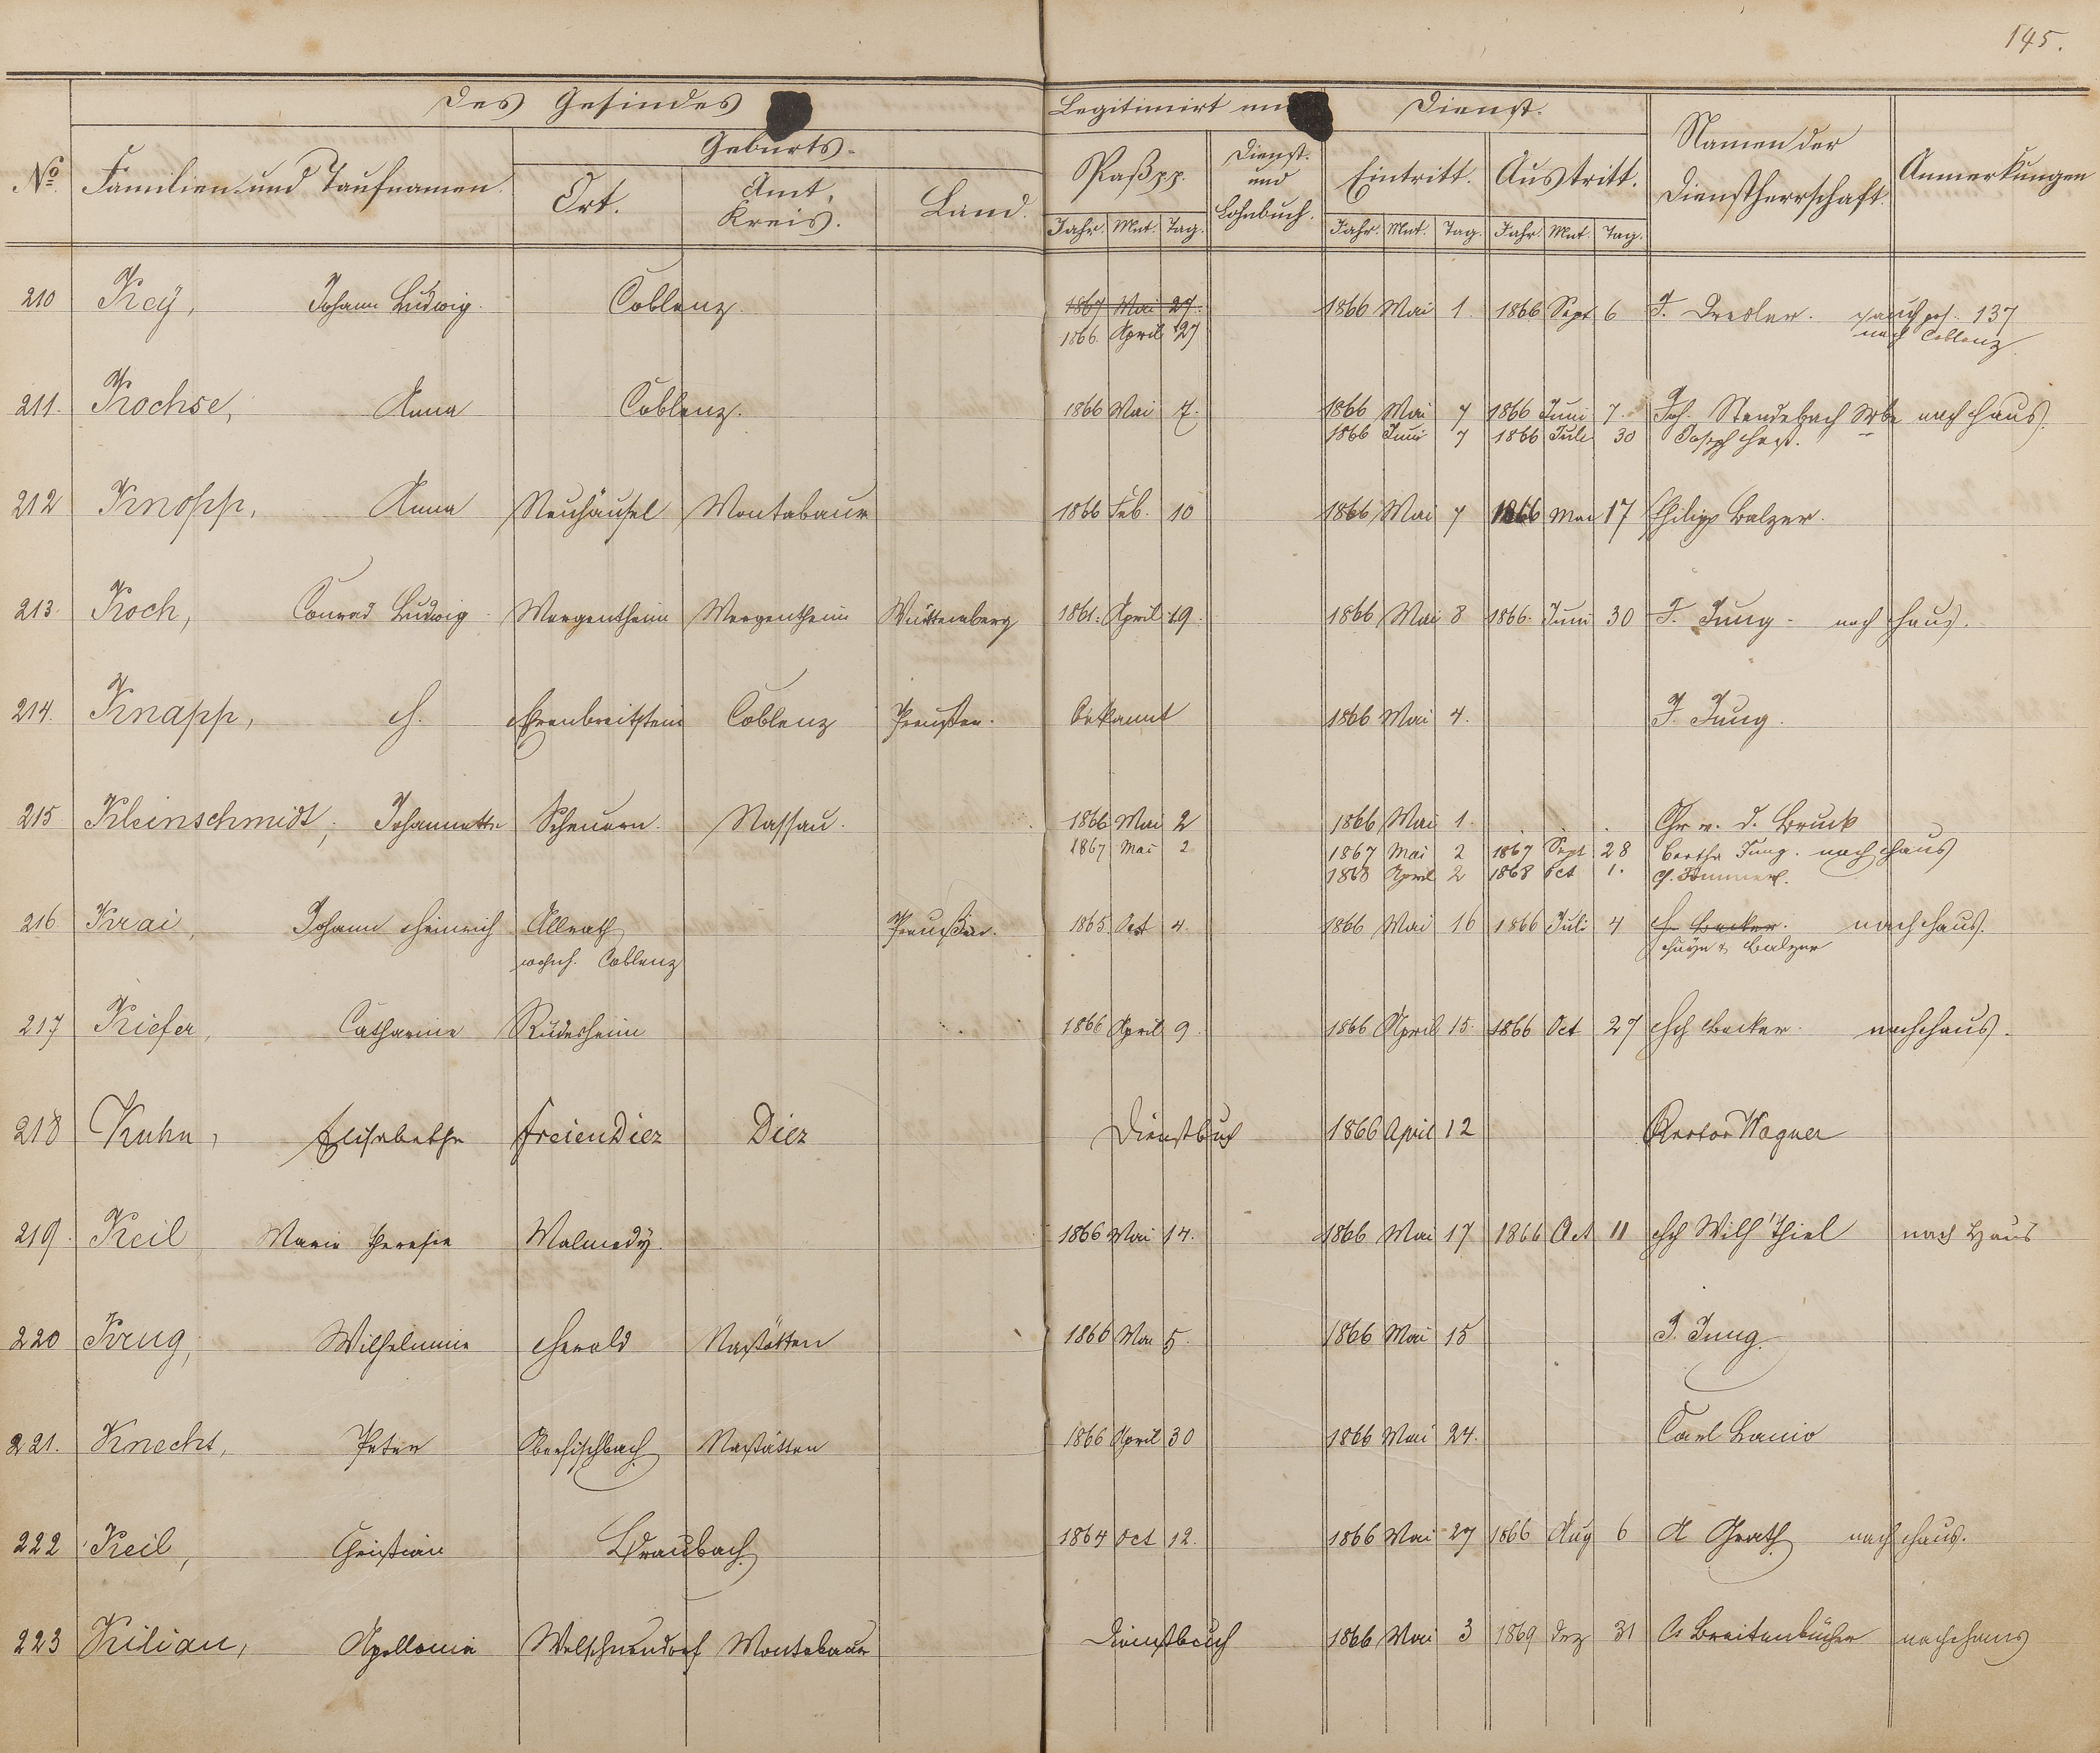 145.
Des Gesindes
Legitimirt
Dienst.
Namen der Dienstherrschaft.
Anmerkungen
No. Familien- und Taufnamen.
Geburts-
Ort. Amt, Kreis. Land.
Paß pp. Dienst- und Lohnbuch. Eintritt. Austritt.
Jahr. Mnt. Tag. Jahr. Mnt. Tag. Jahr. Mnt. Tag.
210 Key, Johann Ludwig. Coblenz. 1867 Mai 27. 1866 Mai 1. 1866 Sept 6 F. 137
1866. April 27 nach Coblenz
211. Kochse, Anna Coblenz. 1866 Mai 7. 1866 Mai 7 1866 Juni 7. Joh. nach Haus.
1866 Juni 7 1866 Juli 30 Joseph
212 Knopp, Anna Neuhäusel Montabaur 1866 Feb. 10 1866 Mai 7 1866 Mai 17 Philipp Balzer.
213. Koch, Conrad Ludwig Mergentheim Mergentheim Württemberg 1861. April 19. 1866 Mai 8 1866. Juni 30 F. Jung - nach Haus.
214. Knapp, H. Ehrenbreitstein Coblenz Preußen. Bekannt 1866 Mai 4. F. Jung.
215 Kleinschmidt, Johannette Scheuern. Nassau. 1866 Mai 2 1866 Mai 1. Chr v. d. Bruck
1867 Mai 2 1867 Mai 2 1867 Sept 28 Bertha Jung. nach Haus
1868 April 2 1868 Oct 1.
216 Krai, Johann Heinrich Allrath Preußen. 1865. Oct 4. 1866 Mai 16 1866 Juli 4 H. Becker. nach Haus.
wohnh. Coblenz & Balzer
217 Kiefer, Catharine Rüdesheim 1866 April 9. 1866 April 15. 1866 Oct 27 Hch Becker. nach Haus.
218 Kuhn, Elisabethe Freiendiez Diez Dienstbuch 1866 April 12 Rector Wagner
219. Keil Marie Therese Malmedy. 1866 Mai 14. 1866 Mai 17 1866 Oct 11 Hch Wilh Thiel nach Haus
220 Krug, Wilhelmine Herold Nastätten 1866 Mai 5. 1866 Mai 15 J. Jung.
221. Knecht, Peter Oberfischbach Nastätten 1866 April 30 1866 Mai 24. Carl
222 Keil, Christian Braubach 1864 Oct 12. 1866 Mai 27 1866 Aug 6 A nach Haus.
223 Kilian, Apollonia Welschneudorf Montabaur Dienstbuch 1866 Mai 3 1869 Dez 31 Breitenbücher nach Haus